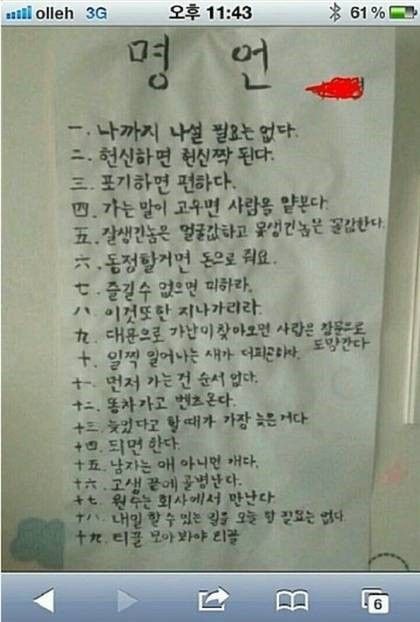 olleh 3G 오후 11:43 61%
명 언
一. 나까지 나설 필요는 없다.
二. 헌신하면 헌신짝 된다.
三. 포기하면 편하다.
四. 가는 말이 고우면 사람을 얕본다.
五. 잘생긴놈은 얼굴값하고 못생긴놈은 꼴값한다.
六. 동정할거면 돈으로 줘요.
七. 즐길수 없으면 피하라.
八. 이것또한 지나가리라.
九. 대문으로 가난이 찾아오면 사랑은 창문으로
도망간다
十. 일찍 일어나는 새가 더피곤하다.
十一. 먼저 가는건 순서 없다.
十二. 똥차가고 벤츠온다.
十三. 늦었다고 할때가 가장 늦은거다.
十四. 되면 한다.
十五. 남자는 애 아니면 개다.
十六. 고생 끝에 골병난다.
十七. 원수는 회사에서 만난다
十八. 내일 할수 있는 일을 오늘 할 필요는 없다.
十九. 티끌 모아봐야 티끌
6